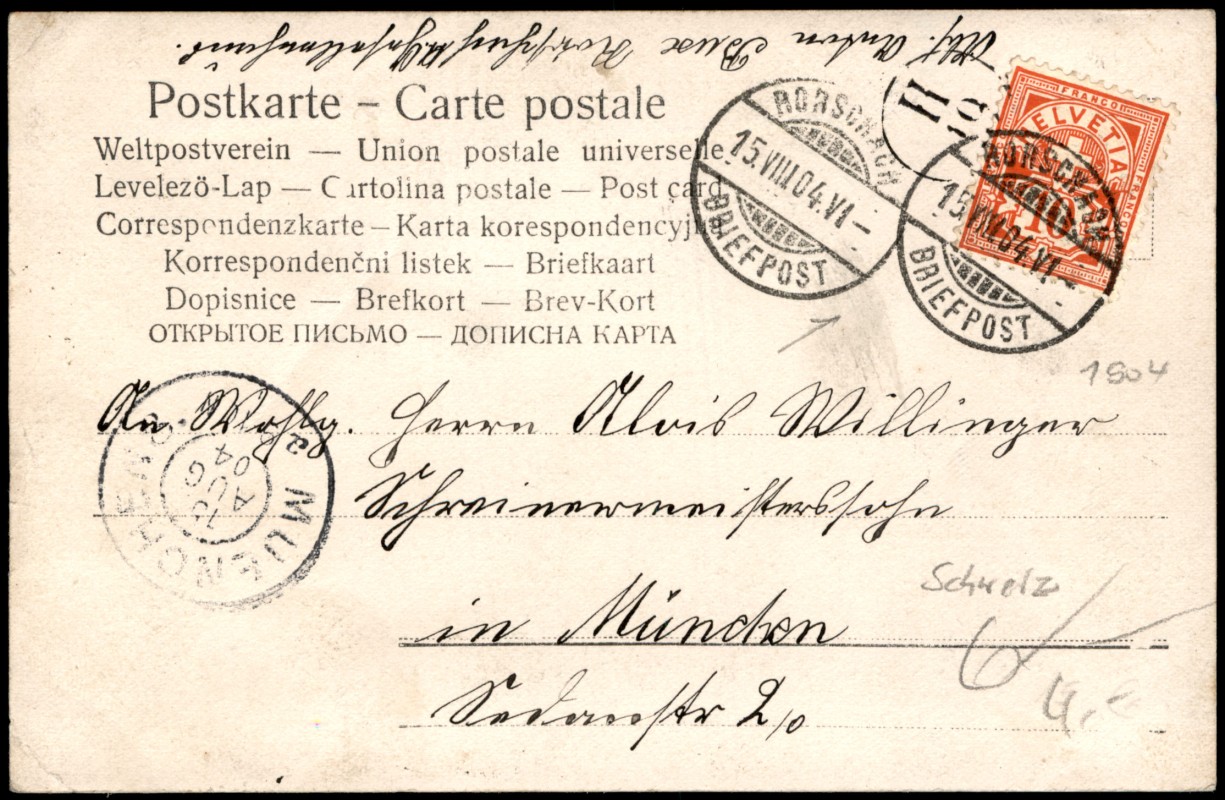 Abs. Anton Bux
Postkarte – Carte postale
Weltpostverein — Union postale universelle
Levelező-Lap — Cartolina postale — Post card
Correspondenzkarte – Karta korespondencyjna
Korrespondenční listek — Briefkaart
Dopisnice — Brefkort — Brev-Kort
ОТКРЫТОЕ ПИСЬМО — ДОПИСНА КАРТА
RORSCHACH
15.VIII.04.VI–
BRIEFPOST
FRANCO
HELVETIA
FRANCO
10
RORSCHACH
15.VIII.04.VI–
BRIEFPOST
1904
An Wohlg. Herrn Alois Willinger
Schreinermeisterssohn
in München
Sedanstr 2/0
MUENCHEN
AUG
04
Schweiz
6
4,-